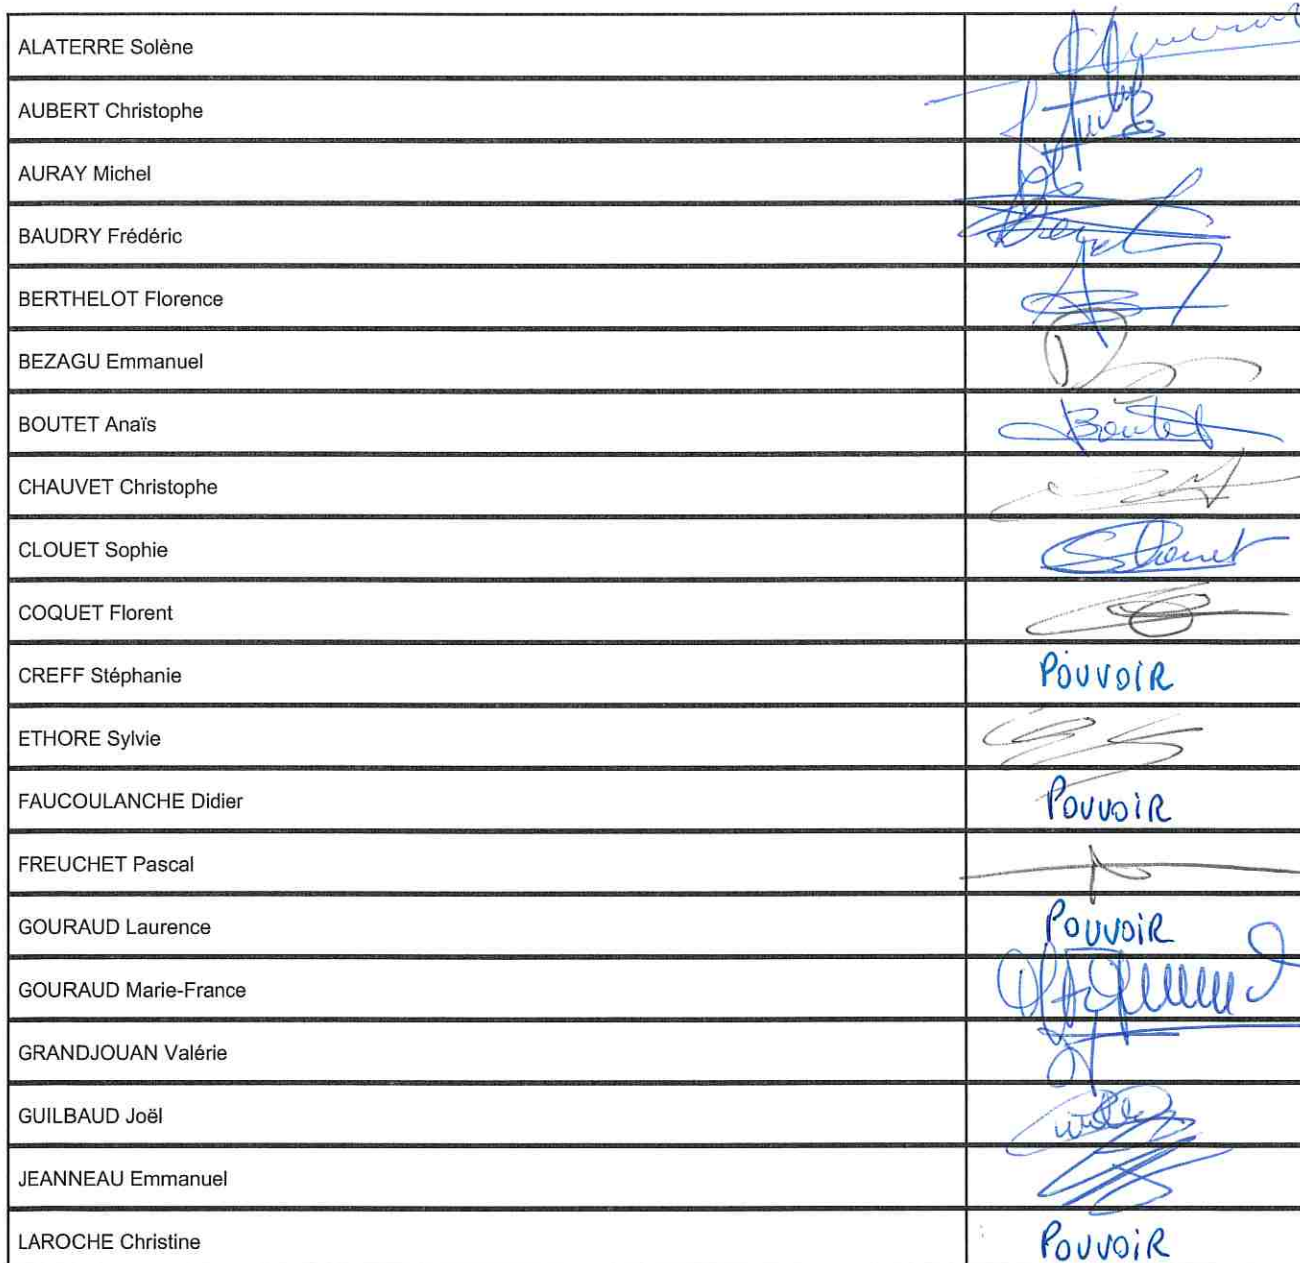 ALATERRE Solène
AUBERT Christophe
AURAY Michel
BAUDRY Frédéric
BERTHELOT Florence
BEZAGU Emmanuel
BOUTET Anaïs Boutet
CHAUVET Christophe
CLOUET Sophie SClouet
COQUET Florent
CREFF Stéphanie POUVOIR
ETHORE Sylvie
FAUCOULANCHE Didier POUVOIR
FREUCHET Pascal
GOURAUD Laurence POUVOIR
GOURAUD Marie-France
GRANDJOUAN Valérie
GUILBAUD Joël
JEANNEAU Emmanuel
LAROCHE Christine POUVOIR